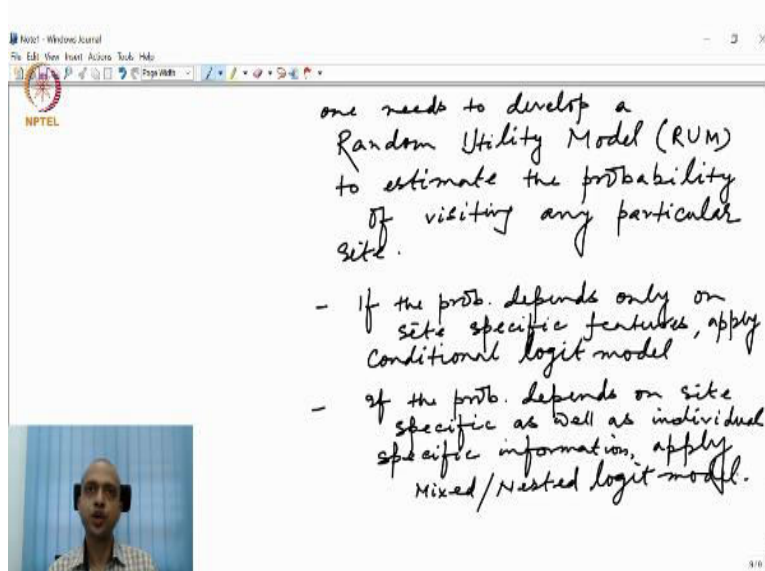 Note1 - Windows Journal
File Edit View Insert Actions Tools Help
Page Width
NPTEL
one needs to develop a
Random Utility Model (RUM)
to estimate the probability
of visiting any particular
site.
- If the prob. depends only on
site specific features, apply
conditional logit model
- If the prob. depends on site
specific as well as individual
specific information, apply
Mixed/Nested logit model.
9/9